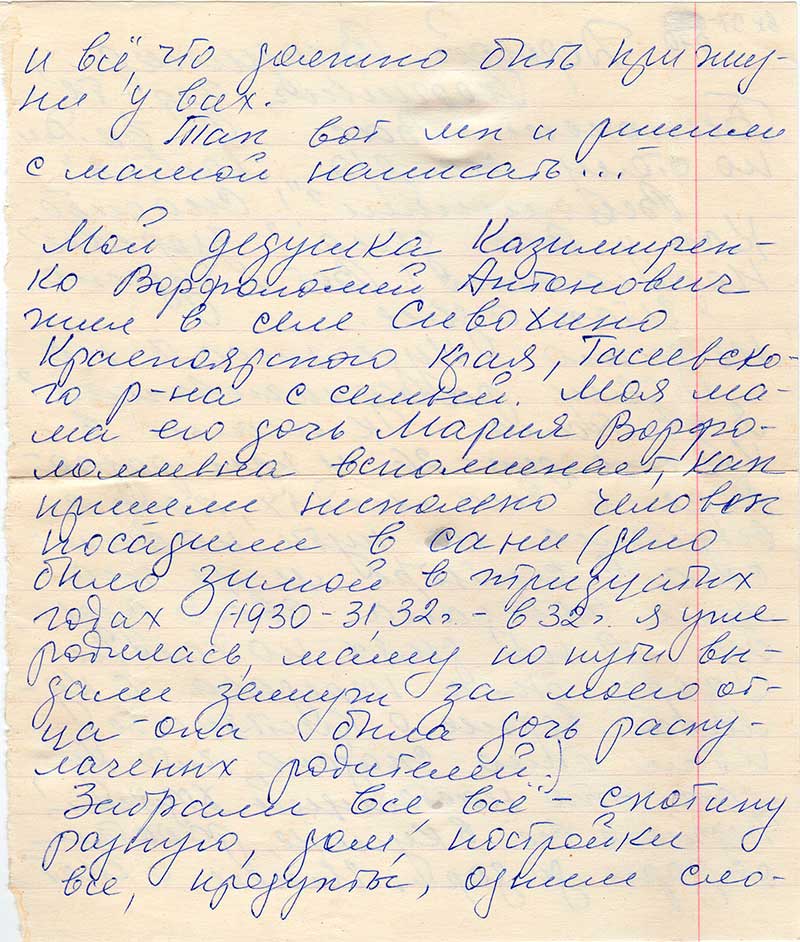 и всё, что должно быть при жиз-
ни у вах.
Так вот мы и решили
с мамой написать...
Мой дедушка Казимирен-
ко Ворфоломей Антонович
жил в селе Сивохино
Красноярского края, Тасеевско-
го р-на с семьёй. Моя ма-
ма его дочь Мария Ворфо-
ломеевна вспоминает, как
пришли несколько человек
посадили в сани (дело
было зимой в тридцатых
годах (1930-31, 32г. - в 32г. я уже
родилась, маму по пути вы-
дали замуж за моего от-
ца - она была дочь раску-
лаченных родителей.)
Забрали всё, всё - скотину
разную, дом, постройки
все, продукты, одним сло-